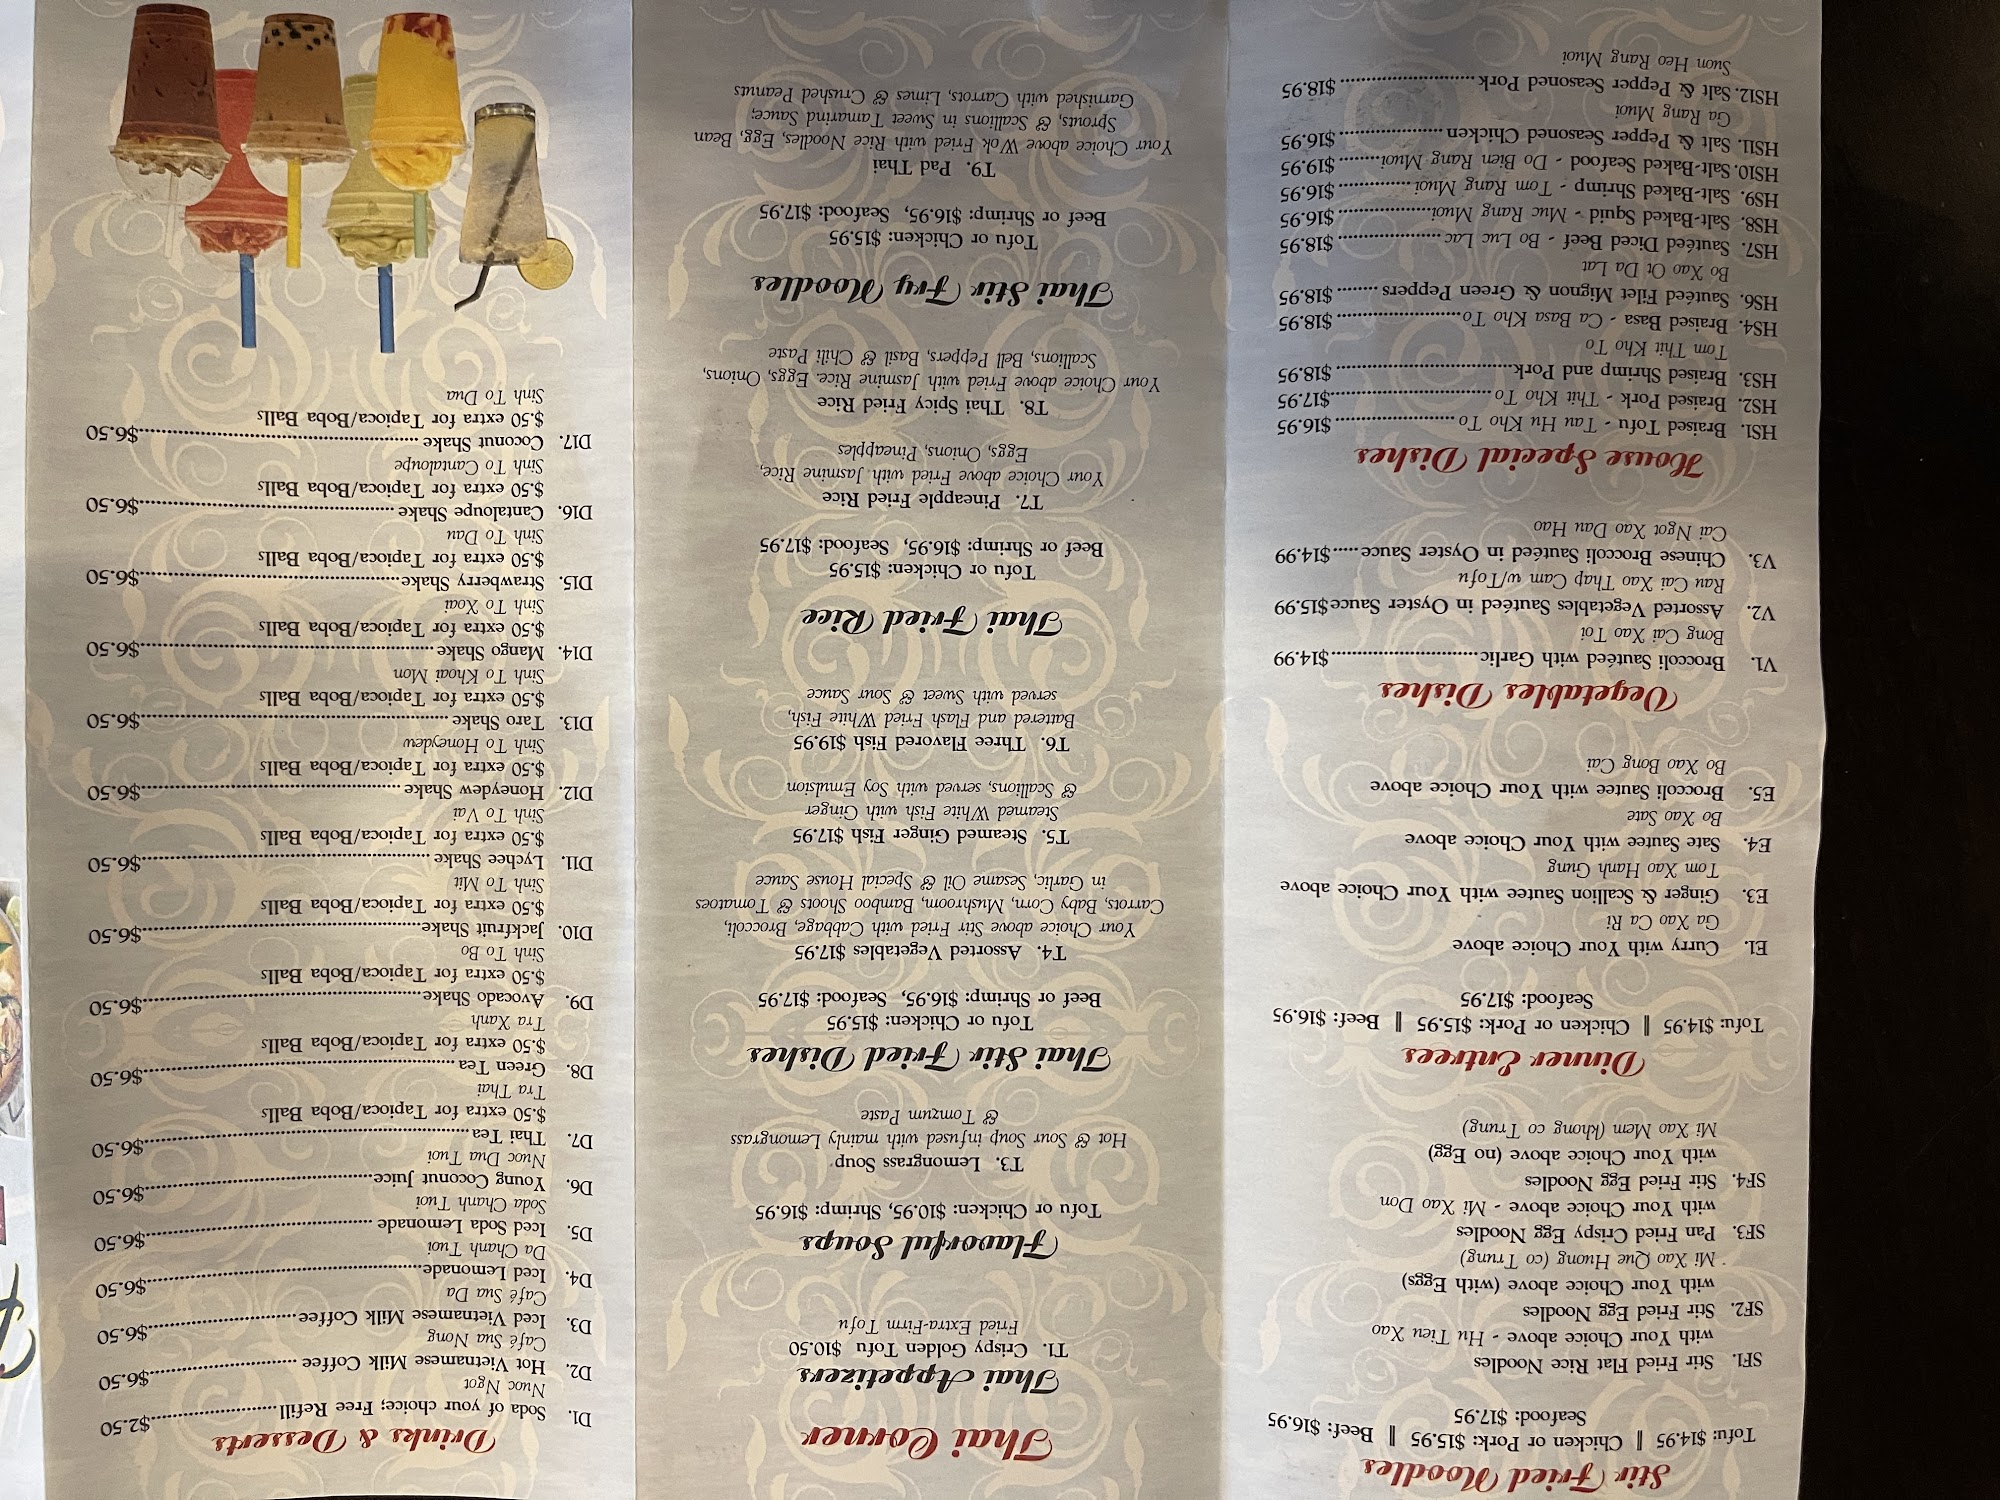 Stir Fried Noodles
Tofu: $14.95 || Chicken or Pork: $15.95 || Beef: $16.95
Seafood: $17.95
SF1. Stir Fried Flat Rice Noodles
with Your Choice above - Hu Tieu Xao
SF2. Stir Fried Egg Noodles
with Your Choice above (with Eggs)
Mi Xao Que Huong (co Trung)
SF3. Pan Fried Crispy Egg Noodles
with Your Choice above - Mi Xao Don
SF4. Stir Fried Egg Noodles
with Your Choice above (no Egg)
Mi Xao Mem (khong co Trung)
Dinner Entrees
Tofu: $14.95 || Chicken or Pork: $15.95 || Beef: $16.95
Seafood: $17.95
E1. Curry with Your Choice above
Ga Xao Ca Ri
E3. Ginger & Scallion Sautee with Your Choice above
Tom Xao Hanh Gung
E4. Sate Sautee with Your Choice above
Bo Xao Sate
E5. Broccoli Sautee with Your Choice above
Bo Xao Bong Cai
Vegetables Dishes
V1. Broccoli Sautéed with Garlic..........$14.99
Bong Cai Xao Toi
V2. Assorted Vegetables Sautéed in Oyster Sauce$15.99
Rau Cai Xao Thap Cam w/Tofu
V3. Chinese Broccoli Sautéed in Oyster Sauce.....$14.99
Cai Ngot Xao Dau Hao
House Special Dishes
HS1. Braised Tofu - Tau Hu Kho To..........$16.95
HS2. Braised Pork - Thit Kho To..........$17.95
HS3. Braised Shrimp and Pork..........$18.95
Tom Thit Kho To
HS4. Braised Basa - Ca Basa Kho To..........$18.95
HS6. Sautéed Filet Mignon & Green Peppers ........$18.95
Bo Xao Ot Da Lat
HS7. Sautéed Diced Beef - Bo Luc Lac..........$18.95
HS8. Salt-Baked Squid - Muc Rang Muoi..........$16.95
HS9. Salt-Baked Shrimp - Tom Rang Muoi..........$16.95
HS10. Salt-Baked Seafood - Do Bien Rang Muoi........$19.95
HS11. Salt & Pepper Seasoned Chicken..........$16.95
Ga Rang Muoi
HS12. Salt & Pepper Seasoned Pork..........$18.95
Suon Heo Rang Muoi
Thai Corner
Thai Appetizers
T1. Crispy Golden Tofu $10.50
Fried Extra-Firm Tofu
Flavorful Soups
Tofu or Chicken: $10.95, Shrimp: $16.95
T3. Lemongrass Soup
Hot & Sour Soup infused with mainly Lemongrass
& Tomzum Paste
Thai Stir Fried Dishes
Tofu or Chicken: $15.95
Beef or Shrimp: $16.95, Seafood: $17.95
T4. Assorted Vegetables $17.95
Your Choice above Stir Fried with Cabbage, Broccoli,
Carrots, Baby Corn, Mushroom, Bamboo Shoots & Tomatoes
in Garlic, Sesame Oil & Special House Sauce
T5. Steamed Ginger Fish $17.95
Steamed White Fish with Ginger
& Scallions, served with Soy Emulsion
T6. Three Flavored Fish $19.95
Battered and Flash Fried White Fish,
served with Sweet & Sour Sauce
Thai Fried Rice
Tofu or Chicken: $15.95
Beef or Shrimp: $16.95, Seafood: $17.95
T7. Pineapple Fried Rice
Your Choice above Fried with Jasmine Rice,
Eggs, Onions, Pineapples
T8. Thai Spicy Fried Rice
Your Choice above Fried with Jasmine Rice. Eggs, Onions,
Scallions, Bell Peppers, Basil & Chili Paste
Thai Stir Fry Noodles
Tofu or Chicken: $15.95
Beef or Shrimp: $16.95, Seafood: $17.95
T9. Pad Thai
Your Choice above Wok Fried with Rice Noodles, Egg, Bean
Sprouts, & Scallions in Sweet Tamarind Sauce;
Garnished with Carrots, Limes & Crushed Peanuts
Drinks & Desserts
D1. Soda of your choice; Free Refill..........$2.50
Nuoc Ngot
D2. Hot Vietnamese Milk Coffee..........$6.50
Café Sua Nong
D3. Iced Vietnamese Milk Coffee..........$6.50
Café Sua Da
D4. Iced Lemonade..........$6.50
Da Chanh Tuoi
D5. Iced Soda Lemonade..........$6.50
Soda Chanh Tuoi
D6. Young Coconut Juice..........$6.50
Nuoc Dua Tuoi
D7. Thai Tea..........$6.50
$.50 extra for Tapioca/Boba Balls
Tra Thai
D8. Green Tea..........$6.50
$.50 extra for Tapioca/Boba Balls
Tra Xanh
D9. Avocado Shake..........$6.50
$.50 extra for Tapioca/Boba Balls
Sinh To Bo
D10. Jackfruit Shake..........$6.50
$.50 extra for Tapioca/Boba Balls
Sinh To Mit
D11. Lychee Shake..........$6.50
$.50 extra for Tapioca/Boba Balls
Sinh To Vai
D12. Honeydew Shake..........$6.50
$.50 extra for Tapioca/Boba Balls
Sinh To Honeydew
D13. Taro Shake..........$6.50
$.50 extra for Tapioca/Boba Balls
Sinh To Khoai Mon
D14. Mango Shake..........$6.50
$.50 extra for Tapioca/Boba Balls
Sinh To Xoai
D15. Strawberry Shake..........$6.50
$.50 extra for Tapioca/Boba Balls
Sinh To Dau
D16. Cantaloupe Shake..........$6.50
$.50 extra for Tapioca/Boba Balls
Sinh To Cantaloupe
D17. Coconut Shake..........$6.50
$.50 extra for Tapioca/Boba Balls
Sinh To Dua